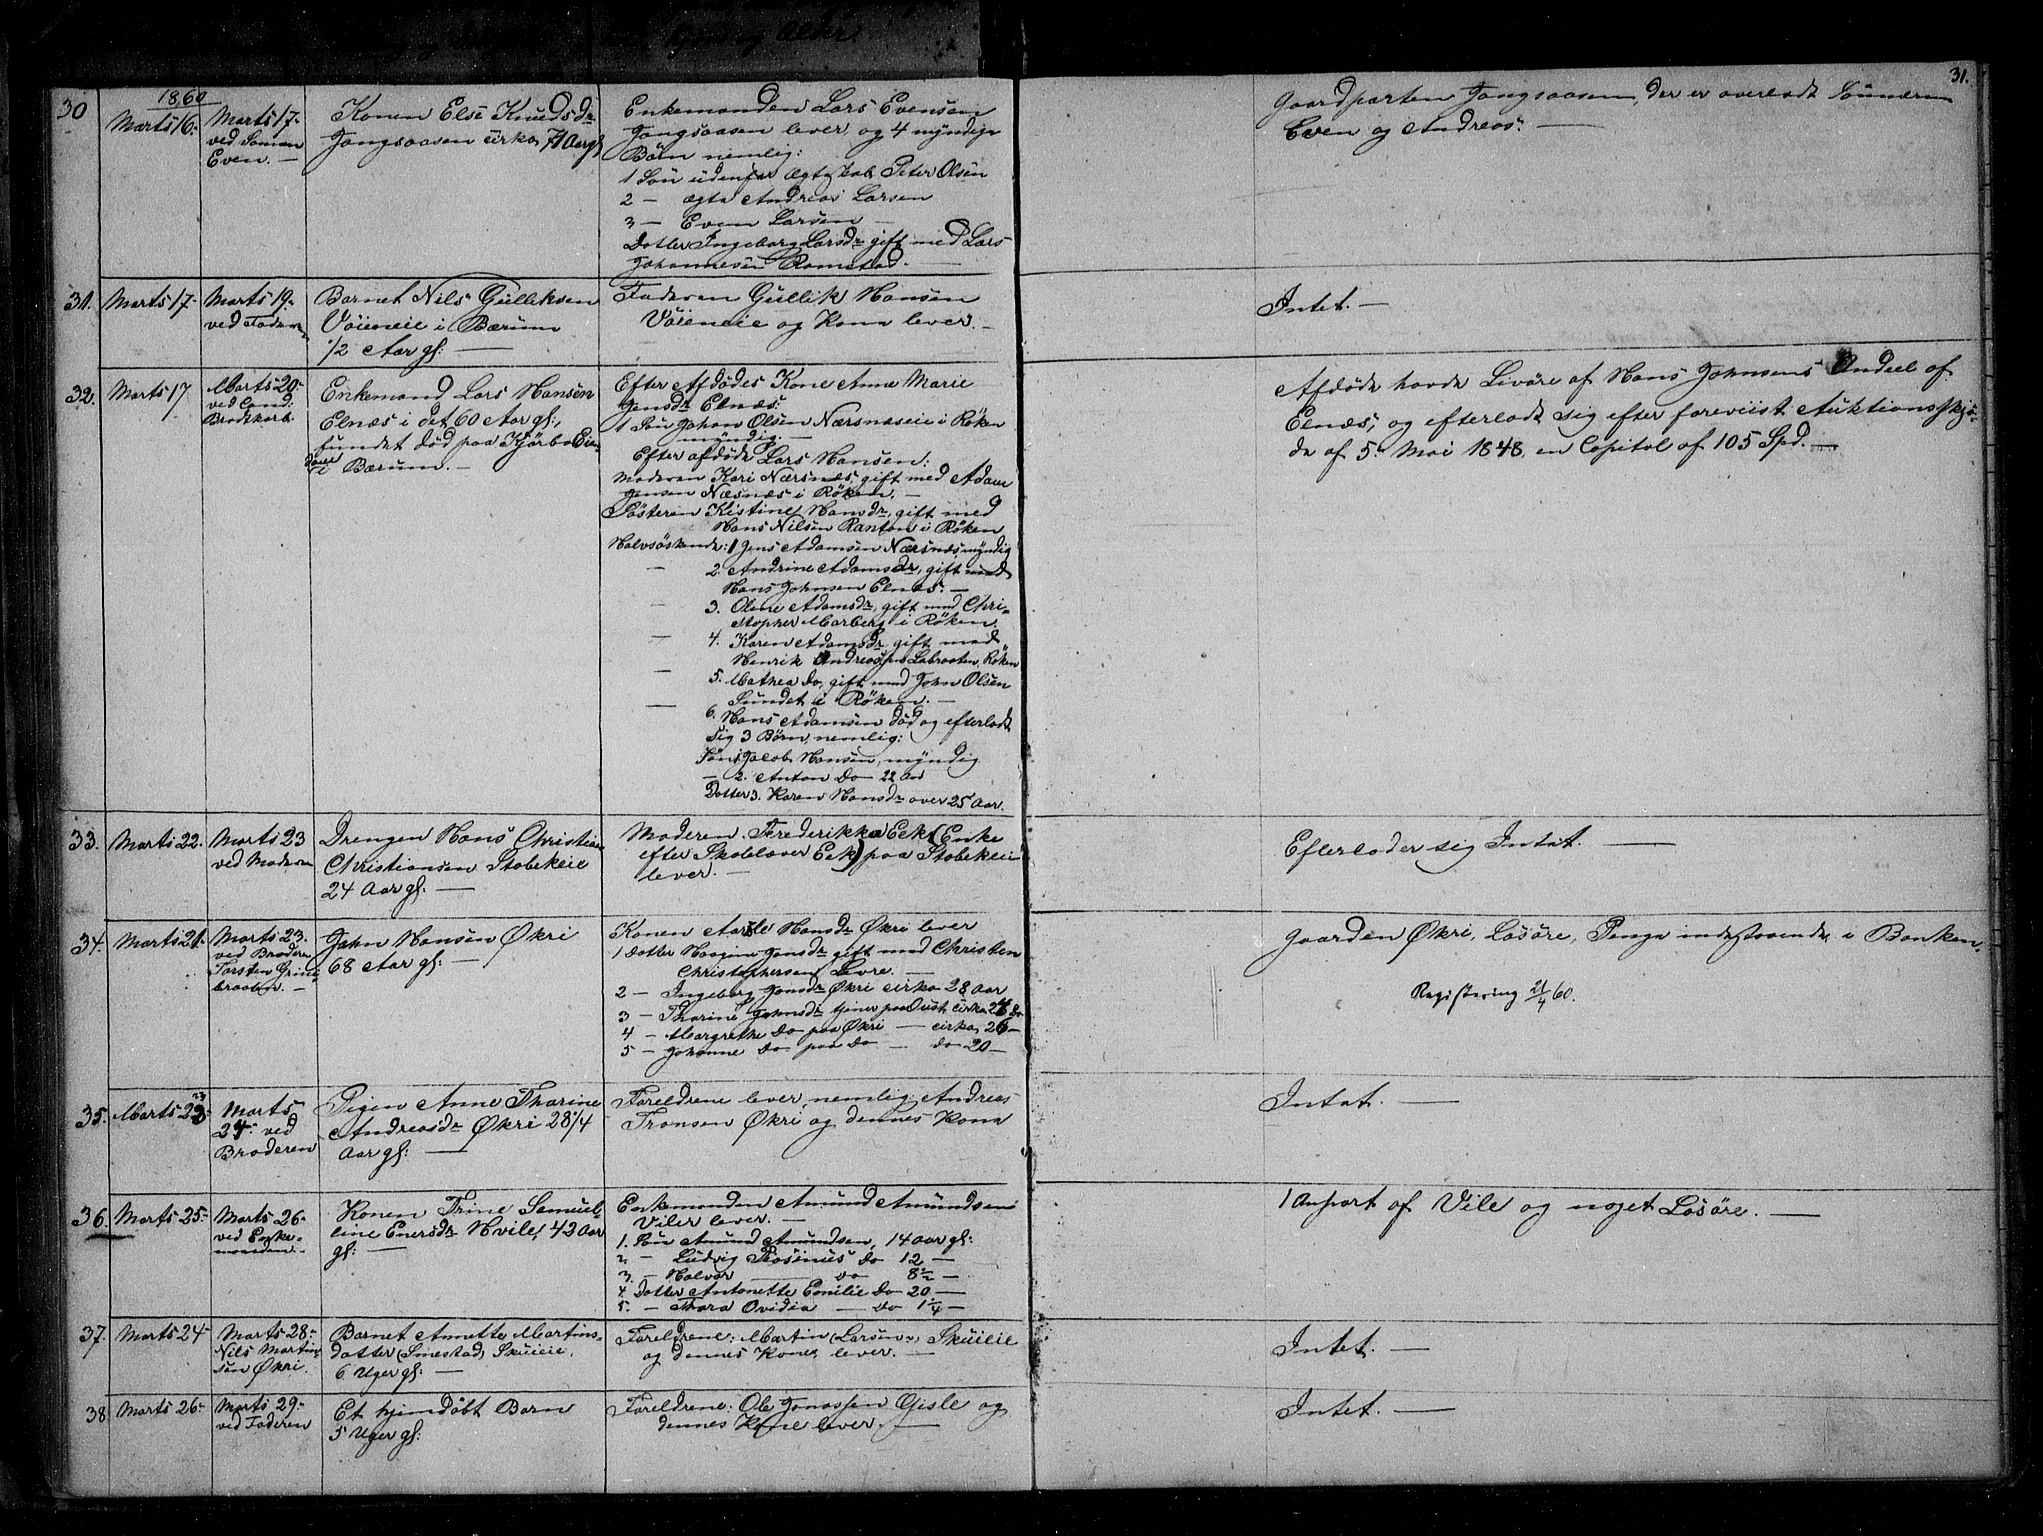 Alder
1860
30
Marts 16.
Marts 17.
ved Sønnen
Even. —
Konen Else Knudsdr
Jongsaasen cirka 71 Aar gl.
Enkemanden Lars Evensen
Jongsaasen lever, og 4 myndige
Børn nemlig:
1 Søn udenfor Ægteskab Peter Olsen
2 — ægte Andreas Larsen
3 — Even Larsen —
Dotter Ingeborg Larsdr gift med Lars
Johannesen Ramstad. —
31.
Gaardparten Jongsaasen, der er overladt Sønnerne
Even og Andreas. —
31.
Marts 17.
Marts 19.
ved Faderen
Barnet Nils Gulliksen
Vøieneie i Bærum
1/2 Aar gl. —
Faderen Gullik Hansen
Vøieneie og Kone lever. —
Intet. —
32.
Marts 17
Marts 20.
ved Cand:
Brodtkorb.
Enkemand Lars Hansen
Elnæs i det 60 Aar gl.,
fundet død paa Kjørbo Ein-
i Bærum. —
Efter Afdødes Kone Anne Marie
Jensdr Elnæs.
1 Søn Johan Olsen Nærsnæseie i Røken
myndig. —
Efter afdøde Lars Hansen:
Moderen Kari Nærsnæs, gift med Adam
Jensen Næsnæs i Røken. —
Søsteren Kistine Hansdr, gift med
Hans Nilsen Ranton i Røken
Halvsøskende: 1 Jens Adamsen Nærsnæs, myndig
— 2. Andrine Adamsdr, gift med
Hans Johnsen Elnæs. —
— 3. Oline Adamsdr, gift med Chri-
stopher Morberg i Røken.
— 4. Karen Adamsdr gift med
Henrik Andreassen Labraaten, Røken
— 5. Mathea do, gift med John Olsen
Sundet i Røken. —
— 6. Hans Adamsen død og efterladt
sig 3 Børn, nemlig:
Søn 1 Jacob Hansen, myndig
— 2. Anton do 22 Aar
Dotter 3. Karen Hansdr over 25 Aar.
Afdøde havde Livøre af Hans Johnsens Andeel af
Elnæs, og efterlodt sig efter foreviist Auktionsskjø-
de af 5. Mai 1848, en Capital af 105 Spd. —
33.
Marts 22.
Marts 23
ved Moderen
Drengen Hans Christian
Christiansen Stabekeie
24 Aar gl. —
Moderen Frederikka Eek (Enke
efter Skolelærer Eek) paa Stabekeie
lever. —
Efterlader sig Intet. —
34.
Marts 21.
Marts 23.
ved Broderen
Torsten Grini-
braaten. —
John Hansen Økri
68 Aar gl. —
Konen Aasle Hansdr Økri lever
1 Dotter Hasgine Jonsdr gift med Christen
Christophersen Levre. —
2 — Ingeborg Jonsdr Økri cirka 28 Aar
3 — Tharine Johnsdr tjener paa Qust cirka 24 do
4 — Margrethe do paa Økri — cirka 26 —
5 — Johanne do paa do — do 20 —
Gaarden Økri, Løsøre, Penge indestaaende i Banken.
Registering 21/4 60.
35.
Marts 23
Marts
24. ved
Broderen
Pigen Anne Tharine
Andreasdr Økri 28 1/4
Aar gl. —
Foreldrene lever, nemlig Andreas
Tronsen Økri og dennes Kone
Intet. —
36.
Marts 25.
Marts 26.
ved Enke-
manden.
Konen Trine Samuel-
line Enersdr Hvile, 42 Aar
gl. —
Enkemanden Amund Amundsen
Viler lever. —
1. Søn Amund Amundsen, 14 Aar gl:
2 — Ludvig Rosinus do 12 —
3. — Halvor — do 8 1/2 —
4. Dotter Antonette Emilie do 20 —
5. — Thora Ovidia — do 1 1/4 —
1 Anpart af Vile og noget Løsøre. —
37.
Marts 24
Marts 28.
Nils Martin-
sen Økri.
Barnet Annette Martins-
datter (Smestad) Skuieie.
6 Uger gl. —
Foreldrene: Martin (Larsen) Skuieie
og dennes Kone, lever. —
Intet. —
38
Marts 26.
Marts 29.
ved Faderen
Et hjemdøbt Barn
5 Uger gl.
Foreldrene: Ole Jonassen Gjsle og
dennes Kone lever. —
Intet. —